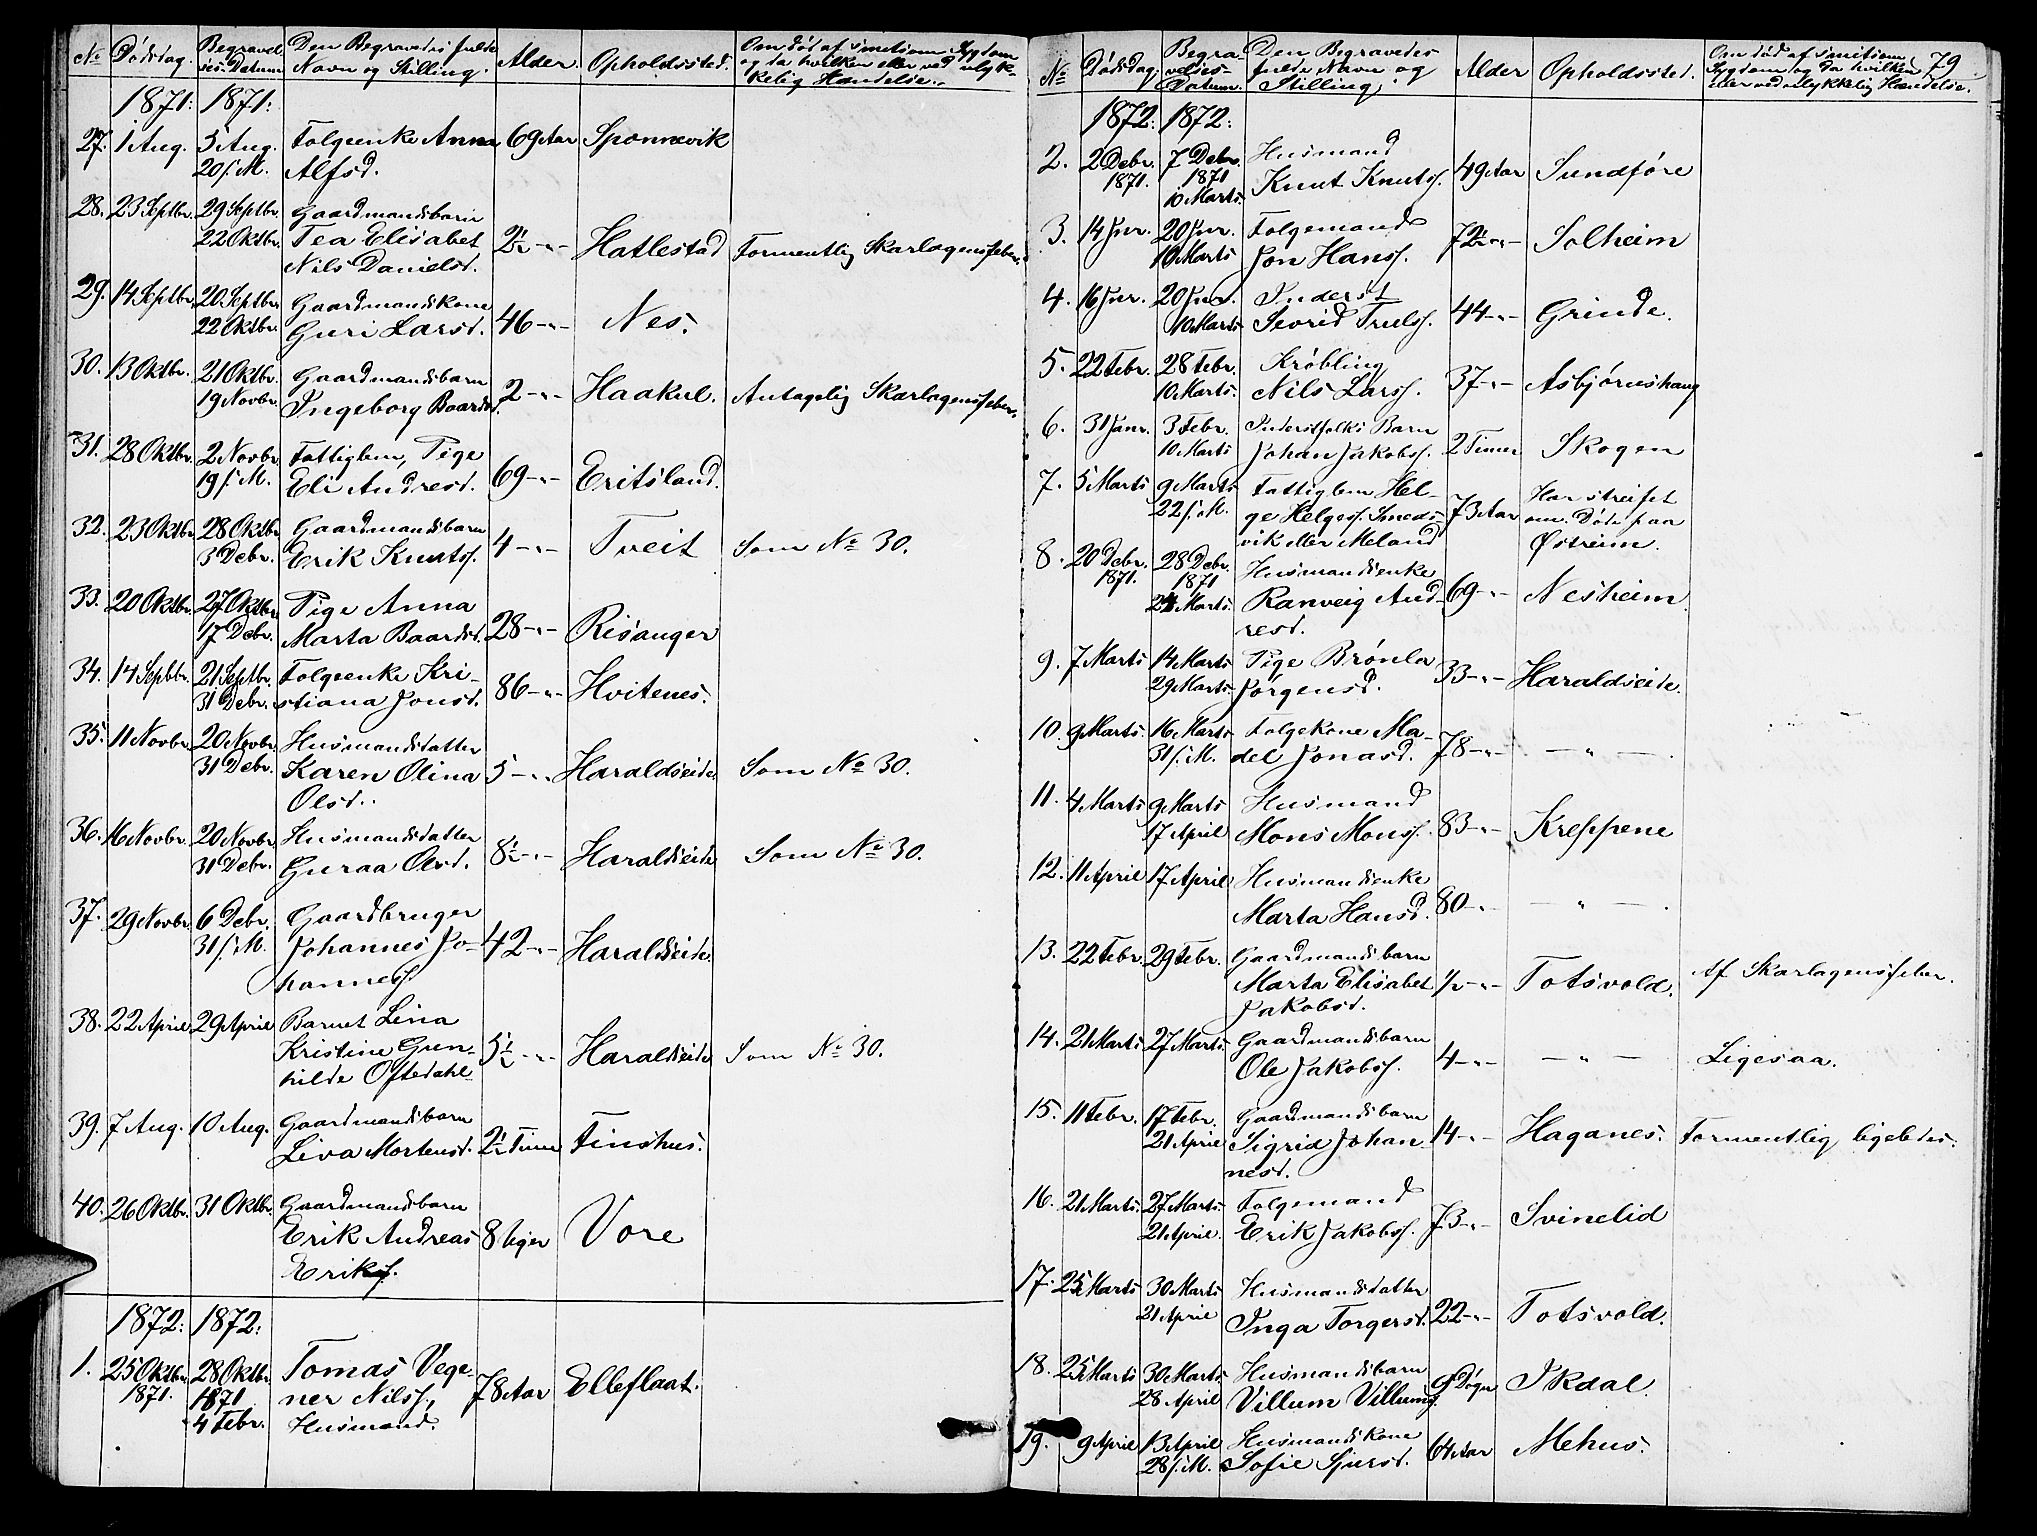 No Dödsdag. Begravelses-Datum Den Begravedes fulde Navn og Stilling. Alder. Opholdssted. Om död af smitsom Sygdom og da hvilken eller ved ulykkelig Hændelse.
1871: 1871:
27. 1 Aug. 5 Aug. Folgeenke Anna 69 Aar Sponnevik
20/s.M. Alfsd.
28. 23 Septbr. 29 Septbr. Gaardmandsbarn
22 Oktbr. Tea Elisabet 2½ -"- Hatlestad Formentlig Skarlagensfeber.
Nils Danielsd.
29. 14 Septbr. 20 Septbr. Gaardmandskone
22 Oktbr. Guri Larsd. 46 -"- Nes.
30. 13 Oktbr. 21 Oktbr. Gaardmandsbarn
19 Novbr. Ingeborg Baardsd. 2 -"- Haakul. Antagelig Skarlagensfeber.
31. 28 Oktbr. 2 Novbr. Fattiglem, Pige
19/s.M. Eli Andresd. 69 -"- Eritsland.
32. 23 Oktbr. 28 Oktbr. Gaardmandsbarn
3 Debr. Erik Knuts. 4 -"- Tveit Som No 30.
33. 20 Oktbr. 27 Oktbr. Pige Anna
17 Debr. Marta Baardsd. 28 -"- Risanger
34. 14 Septbr. 21 Septbr. Folgeenke Kri-
31 Debr. stiana Jonsd. 86 -"- Hvitenes.
35. 11 Novbr. 20 Novbr. Husmandsdatter
31 Debr. Karen Olina 5 -"- Haraldseide Som No 30.
Olsd.
36. 16 Novbr. 20 Novbr. Husmandsdatter
31 Debr. Guraa Olsd. 8½ -"- Haraldseide Som No 30.
37. 29 Novbr. 6 Debr. Gaardbruger
31/s.M. Johannes Jo- 42 -"- Haraldseide.
hanness.
38. 22 April 29 April Barnet Lina
Kristine Gun- 5½ -"- Haraldseide Som No 30.
hilde Oftedahl
39. 7 Aug. 10 Aug. Gaardmandsbarn
Liva Mortensd. 2½ Time Finshus.
40. 26 Oktbr. 31 Oktbr. Gaardmandsbarn
Erik Andreas 8 Uger Vore
Eriks.
1872: 1872:
1. 25 Oktbr. 28 Oktbr. Tomas Vege-
1871. 1871 ner Nilss., 78 Aar Elleflaat.
4 Febr. Husmand.
79.
No Dödsdag. Begravelses-Datum. Den Begravedes fulde Navn og Stilling. Alder Opholdssted. Om död af smitsom Sygdom og da hvilken eller ved ulykkelig Hændelse.
1872: 1872:
2. 2 Debr. 7 Debr. Husmand
1871. 1871 Knut Knuts. 49 Aar Sundföre
10 Marts
3. 14 Jnr. 20 Jnr. Folgemand
10 Marts Jon Hans. 72½ -"- Solheim
4. 16 Jnr. 20 Jnr. Inderst
10 Marts Sevrid Truls. 44 -"- Grinde.
5. 22 Febr. 28 Febr. Kröbling
10 Marts. Nils Lars. 37 -"- Asbjörnshaug
6. 31 Janr. 3 Febr. Inderstfolks Barn
10 Marts Johan Jakobs. 2 Timer Skogen
7. 5 Marts 9 Marts Fattiglem Hel- Har streifet
22/s.M. ge Helges. Smeds- 73 Aar om. Döde paa
vik eller Meland Østreim.
8. 20 Debr. 28 Debr. Husmandsenke
1871. 1871 Ranveig And- 69 -"- Nesheim.
24 Marts. resd.
9. 7 Marts 14 Marts Pige Brönla
29 Marts Jörgensd. 33 -"- Haraldseide.
10. 9 Marts. 16 Marts Folgekone Ma-
31/s.M. del Jonasd. 78 -"- — " —.
11. 4 Marts 9 Marts Husmand
17 April Mons Mons. 83 -"- Kreppene
12. 11 April 17 April Husmandsenke
Marta Hansd. 80 -"- — " —.
13. 22 Febr. 29 Febr. Gaardmandsbarn
Marta Elisabet ½ -"- Totsvold. Af Skarlagensfeber.
Jakobsd.
14. 21 Marts 27 Marts. Gaardmandsbarn
Ole Jakobs. 4 -"- — " — Ligesaa.
15. 11 Febr. 17 Febr. Gaardmandsbarn
21 April Sigrid Johan- 14 -"- Haganes. Formentlig ligeledes.
nesd.
16. 21 Marts. 27 Marts. Folgemand
21 April. Erik Jakobs. 73 -"- Svinelid
17. 25 Marts 30 Marts Husmandsdatter
21 April Inga Torgersd. 22 -"- Totsvold.
18. 25 Marts 30 Marts Husmandsbarn
28 April Villum Villums. 9 Dögn Skdal.
19. 9 April 13 April Husmandskone
28/s.M. Sofie Sjursd. 64 Aar Mehus.